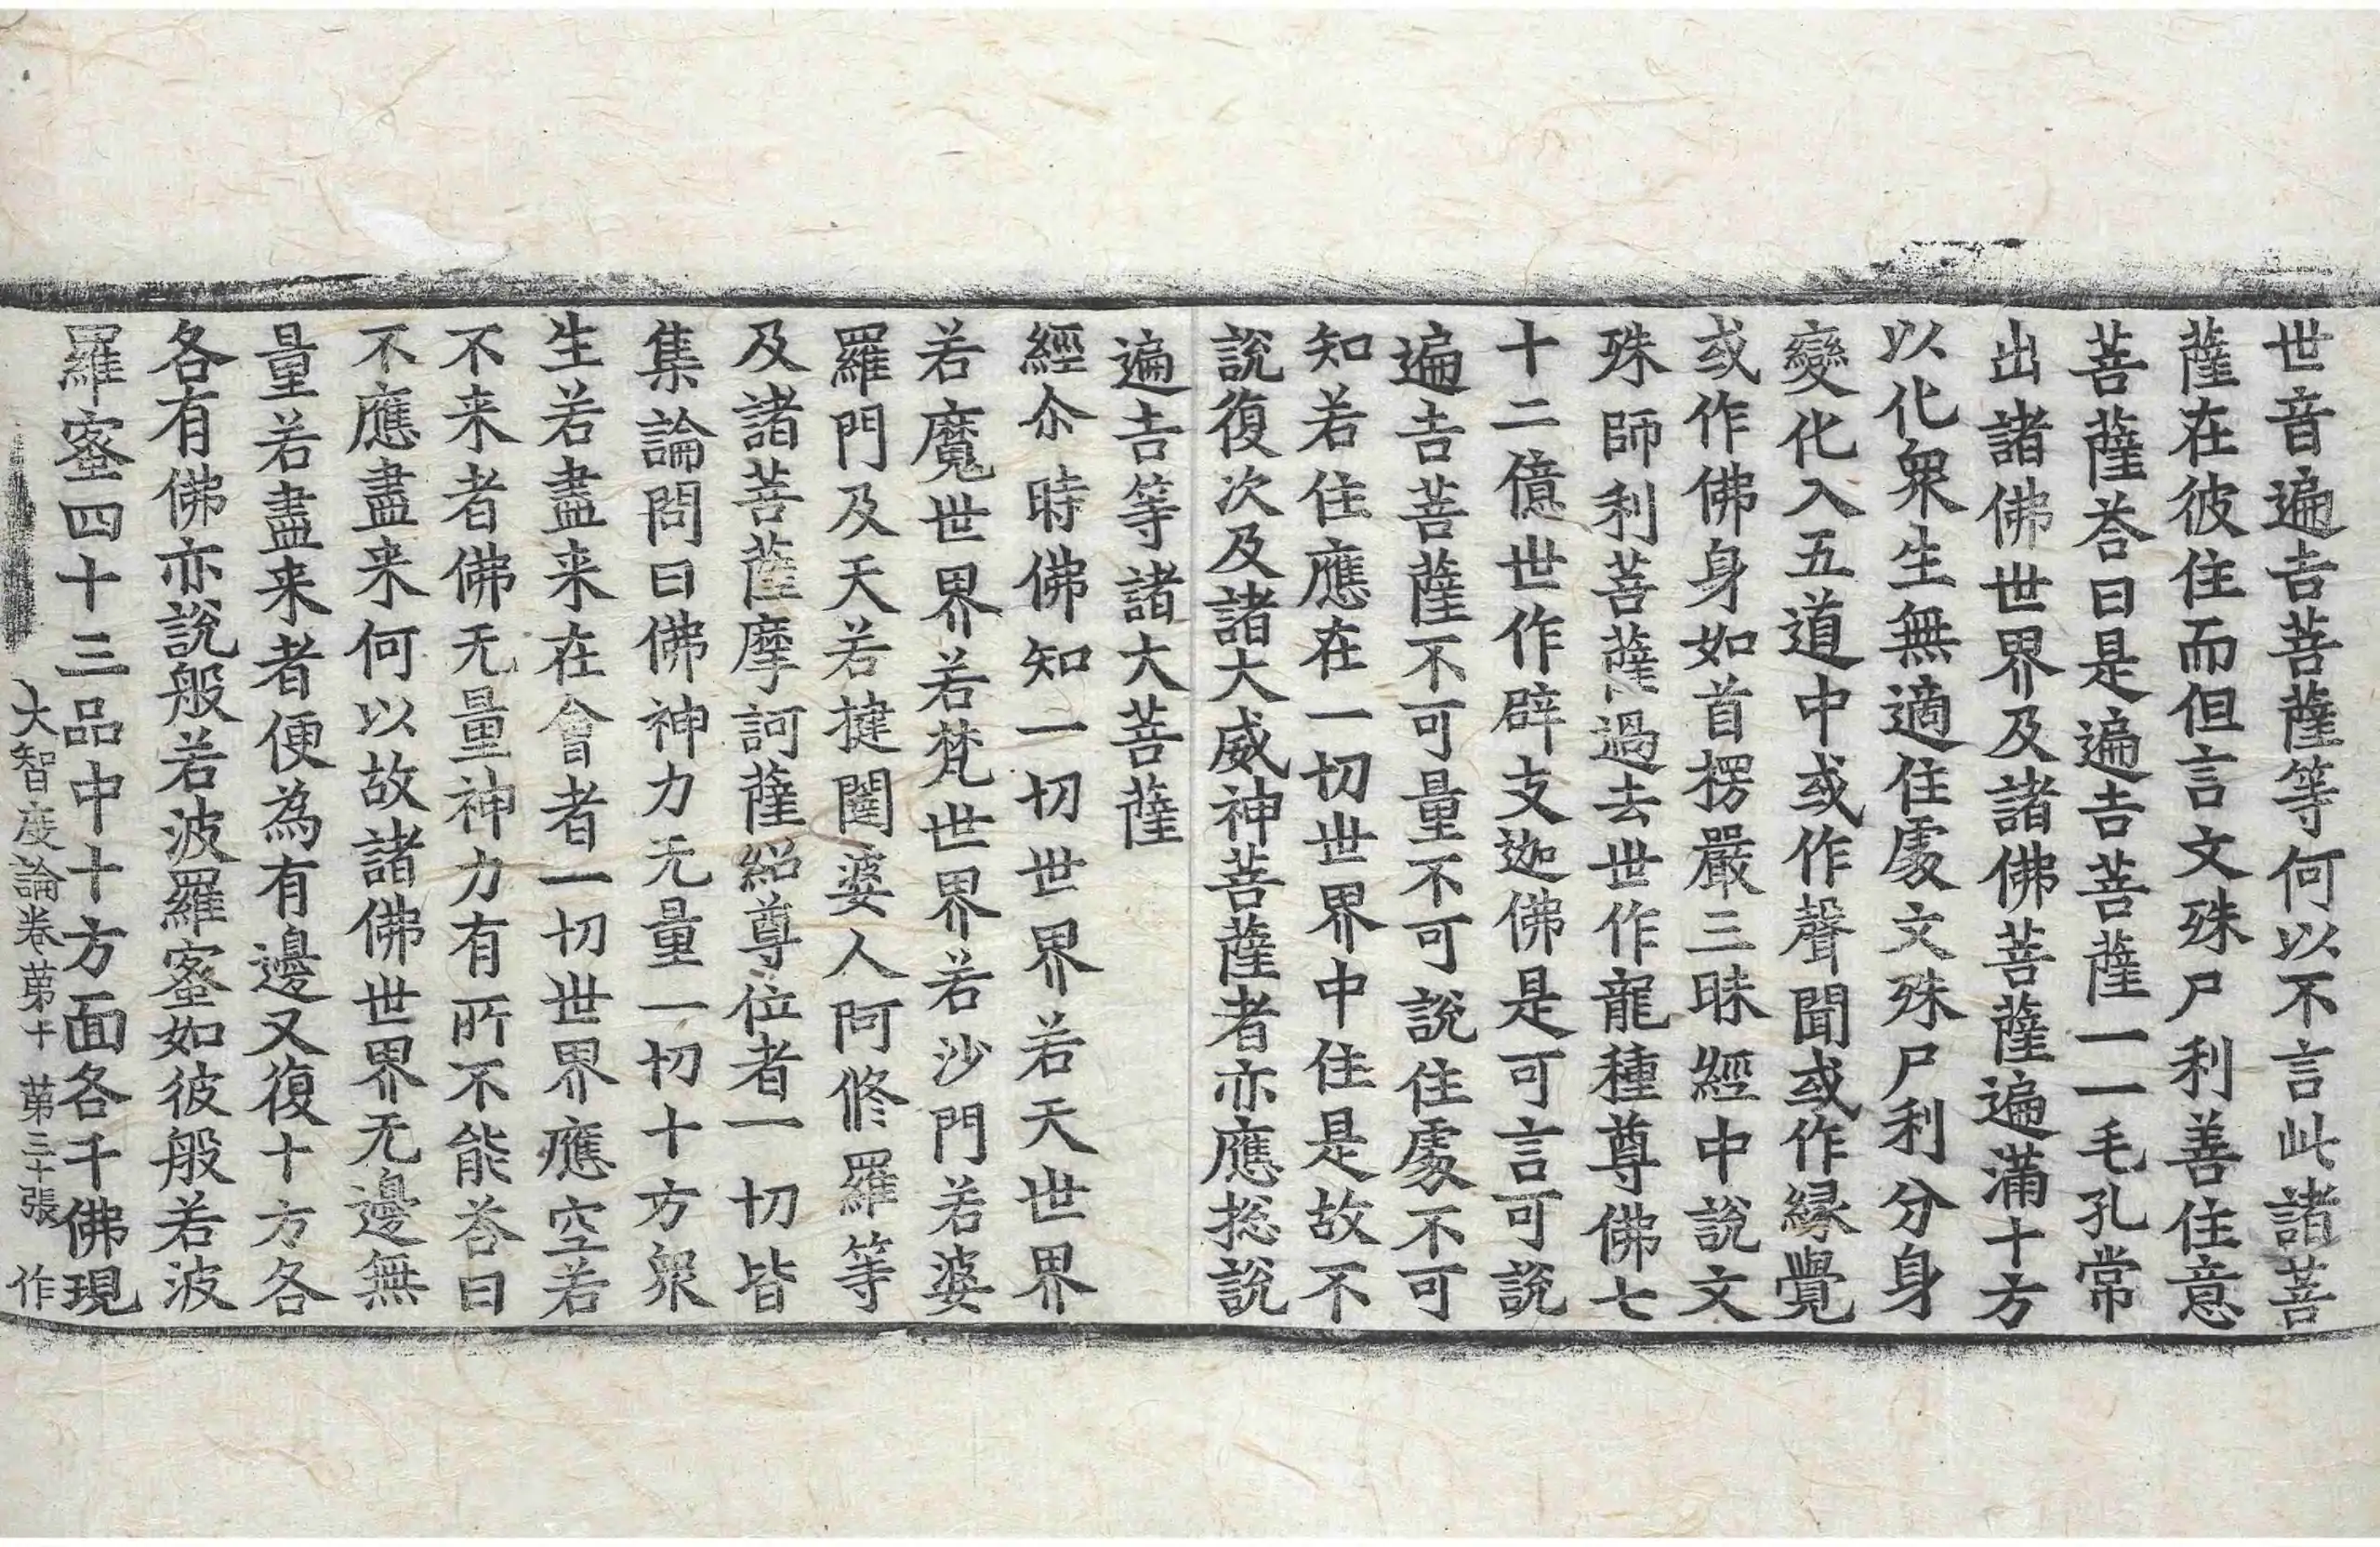 世音遍吉菩薩等何以不言此諸菩
薩在彼住而但言文殊尸利善住意
菩薩荅曰是遍吉菩薩一一毛孔常
出諸佛世界及諸佛菩薩遍滿十方
以化衆生無適住處文殊尸利分身
變化入五道中或作聲聞或作緣覺
或作佛身如首楞嚴三昧經中說文
殊師利菩薩過去世作龍種尊佛七
十二億世作辟支迦佛是可言可說
遍吉菩薩不可量不可說住處不可
知若住應在一切世界中住是故不
說復次及諸大威神菩薩者亦應捴說
遍吉等諸大菩薩
經尒時佛知一切世界若天世界
若魔世界若梵世界若沙門若婆
羅門及天若揵闥婆人阿脩羅等
及諸菩薩摩訶薩紹尊位者一切皆
集論問曰佛神力无量一切十方衆
生若盡来在會者一切世界應空若
不来者佛无量神力有所不能荅曰
不應盡来何以故諸佛世界无邊無
量若盡来者便為有邊又復十方各
各有佛亦說般若波羅蜜如彼般若波
羅蜜四十三品中十方面各千佛現
大智度論卷苐十 苐三十張 作